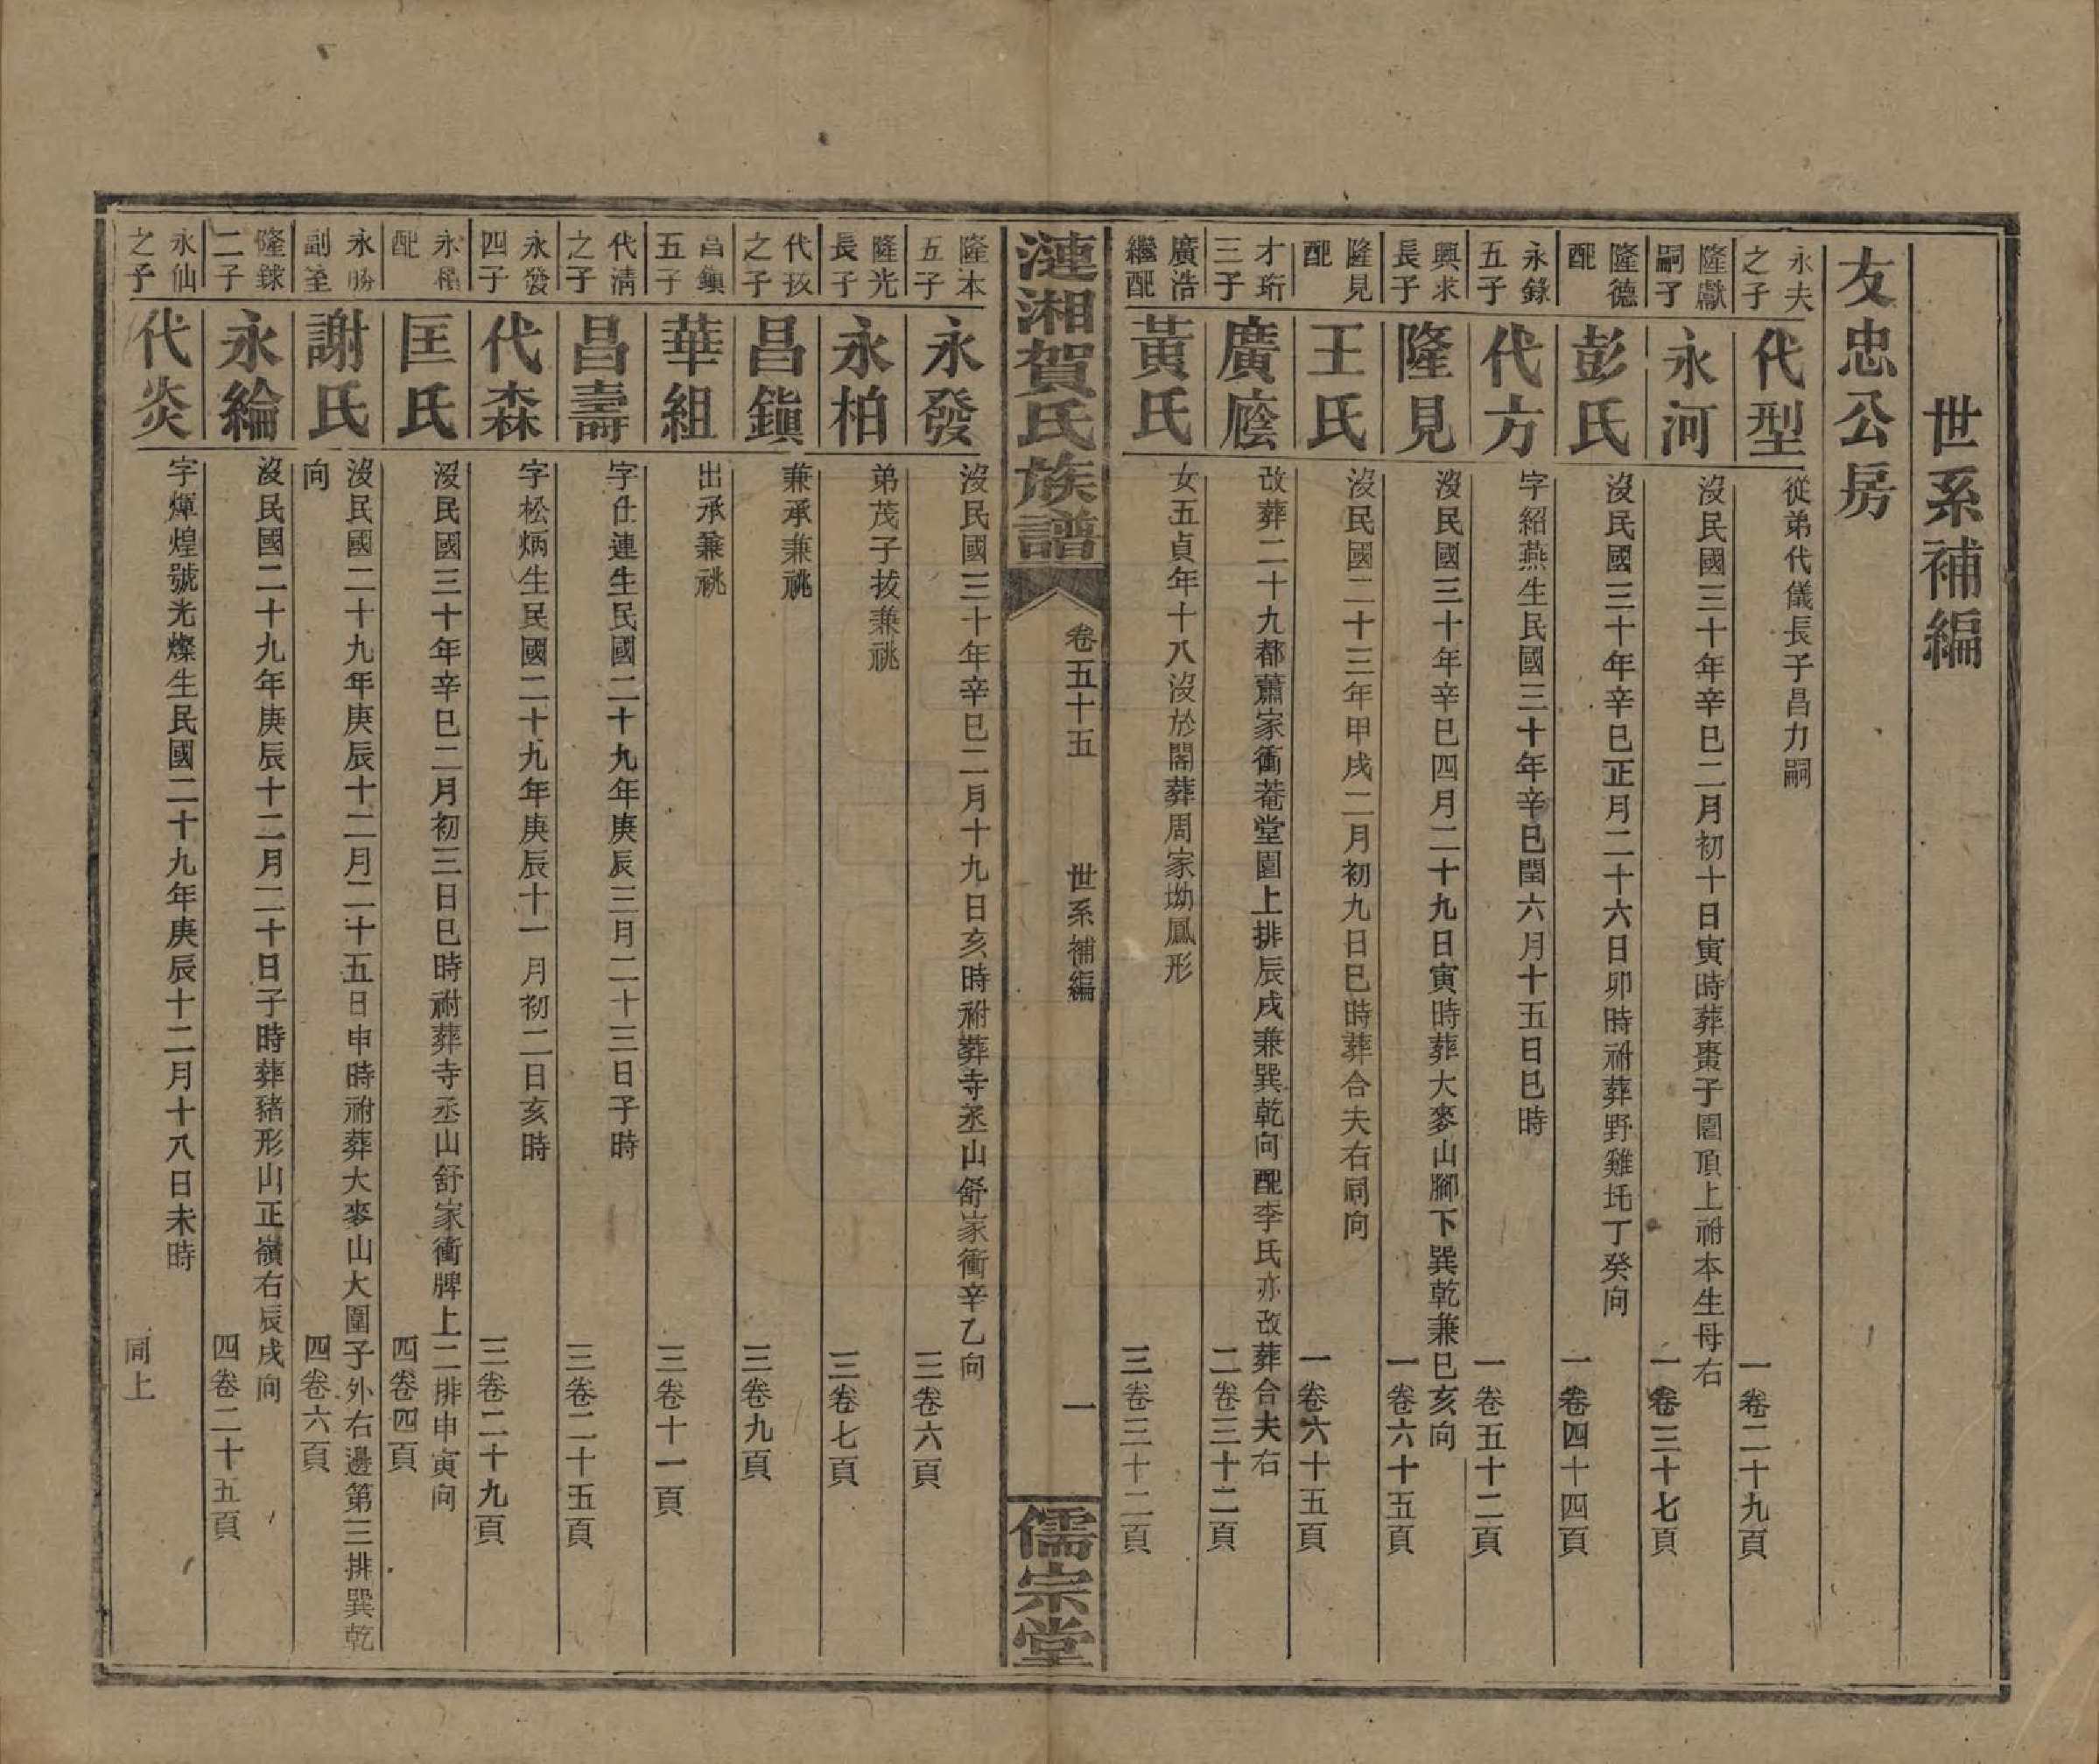 世系補編
友忠公房
永夫之子
代型
從弟代儀長子昌力嗣
一卷二十九頁
隆獻嗣子
永河
沒民國三十年辛巳二月初十日寅時葬棗子園頂上祔本生母右
一卷三十七頁
隆德配
彭氏
沒民國三十年辛巳正月二十六日卯時祔葬野雞圫丁癸向
一卷四十四頁
永錄五子
代方
字紹燕生民國三十年辛巳閏六月十五日巳時
一卷五十二頁
興求長子
隆見
沒民國三十年辛巳四月二十九日寅時葬大麥山腳下巽乾兼巳亥向
一卷六十五頁
隆見配
王氏
沒民國二十三年甲戌二月初九日巳時葬合夫右同向
一卷六十五頁
才珩三子
廣廕
改葬二十九都蕭家衝菴堂園上排辰戌兼巽乾向配李氏亦改葬合夫右
二卷三十二頁
廣浩繼配
黃氏
女五貞年十八沒於閣葬周家坳鳳形
三卷三十二頁
漣湘賀氏族譜
卷五十五
世系補編
一
儒宗堂
隆本五子
永發
沒民國三十年辛巳二月十九日亥時祔葬寺丞山舒家衝辛乙向
三卷六頁
隆光長子
永柏
弟茂子拔兼祧
三卷七頁
代拔之子
昌鎮
兼承兼祧
三卷九頁
昌鎮五子
華組
出承兼祧
三卷十一頁
代清之子
昌壽
字仕連生民國二十九年庚辰三月二十三日子時
三卷二十五頁
永發四子
代森
字松炳生民國二十九年庚辰十一月初二日亥時
三卷二十九頁
永配
匡氏
沒民國三十年辛巳二月初三日巳時祔葬寺丞山舒家衝牌上二排申寅向
四卷四頁
永勝副室
謝氏
沒民國二十九年庚辰十二月二十五日申時祔葬大麥山大圍子外右邊第三排巽乾
向
四卷六頁
隆銶二子
永綸
沒民國二十九年庚辰十二月二十日子時葬豬形山正嶺右辰戌向
四卷二十五頁
永仙之子
代炎
字煇煌號光燦生民國二十九年庚辰十二月十八日未時
同上